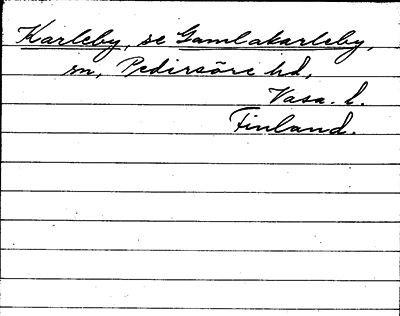 Karleby, se Gamlakarleby,
sn, Pedersöre hd,
Vasa. l.
Finland.